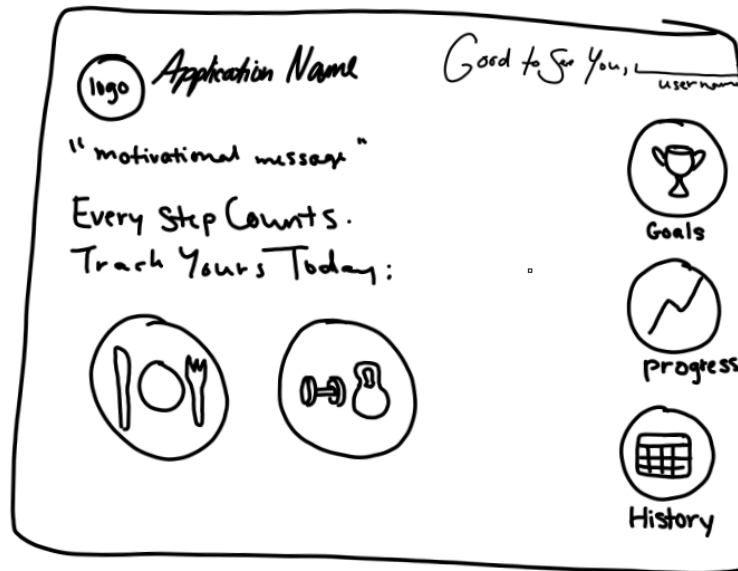 logo
Application Name
Good to See You,
username
"motivational message"
Every Step Counts.
Track Yours Today:
Goals
progress
History